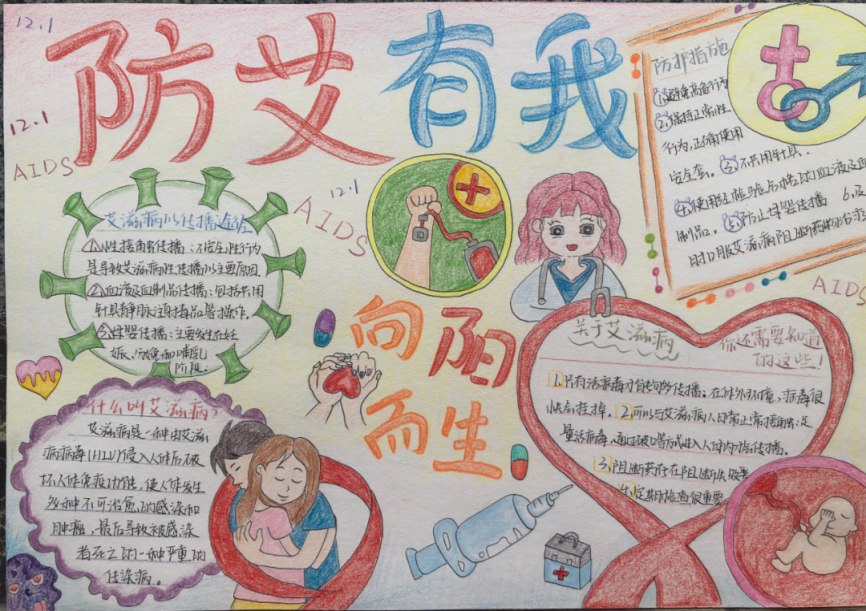 12.1
防艾有我
12.1
AIDS
12.1
AIDS
AIDS
向阳
而生
防护措施
①避免高危行为
②保持正常性
行为，正确使用
安全套。③不共用针具
④使用经检验合格的血液及血
制品。⑤防止母婴传播 6.及
时口服艾滋病阻断药
艾滋病的传播途径
①性接触传播：不安全性行为
是导致艾滋病性传播的主要原因
②血液及血制品传播：包括共用
针具静脉注射毒品等操作。
③母婴传播：主要发生在妊
娠、分娩和哺乳
阶段。
什么叫艾滋病？
艾滋病是一种由艾滋
病病毒(HIV)侵入人体后破
坏人体免疫功能，使人体发生
多种不可治愈的感染和
肿瘤，最后导致被感染
者死亡的一种严重的
传染病。
关于艾滋病
你还需要知道
的这些！
1.只有活病毒才能向外传播。在体外环境，病毒很
快会挂掉。2.可以与艾滋病人日常正常接触：足
量活病毒，通过破口等方式进入人体内才能传播。
3.阻断药存在阻断失败率
4.定期检查很重要